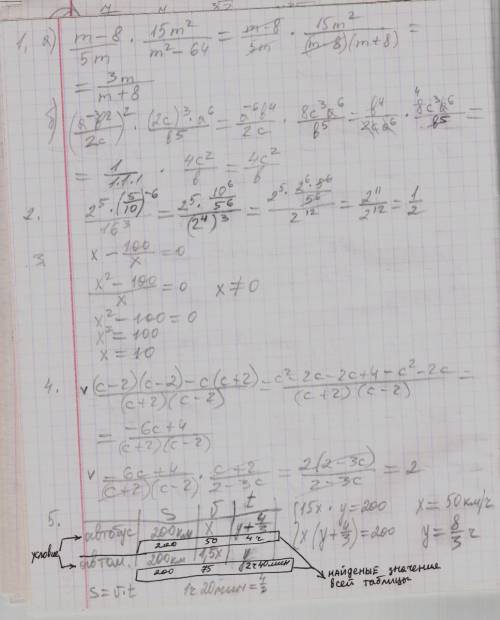 1. а) (m-8)/(5m) · (15m²)/(m²-64) = (m-8)/(5m) · (15m²)/((m-8)(m+8)) =
= 3m/(m+8)
б) (a⁻³b²/2c)² · ((2c)³·a⁶)/b⁵ = (a⁻⁶b⁴)/(2c) · (8c³a⁶)/b⁵ = b⁴/(2c a⁶) · (8c³a⁶)/b⁵ =
= 1/(1·1·1) · 4c²/b = 4c²/b
2. (2⁵·(5/10)⁻⁶)/16³ = (2⁵·10⁶/5⁶)/(2⁴)³ = (2⁵·(2⁶·5⁶)/5⁶)/2¹² = 2¹¹/2¹² = 1/2
3. x - 100/x = 0
(x²-100)/x = 0 x ≠ 0
x²-100 = 0
x² = 100
x = 10
4. v ((c-2)(c-2)-c(c+2))/((c+2)(c-2)) = (c²-2c-2c+4-c²-2c)/((c+2)(c-2)) =
= (-6c+4)/((c+2)(c-2))
v (-6c+4)/((c+2)(c-2)) · (c+2)/(2-3c) = (2(2-3c))/(2-3c) = 2
5. S v t
условие
автобус 200км x y+4/3
200 50 4ч
автом. 200км 1,5x y
200 75 2ч40мин
{1,5x·y=200 x=50км/ч
x(y+4/3)=200 y=8/3 ч
найденые значение
всей таблицы
S=v·t 1ч20мин=4/3